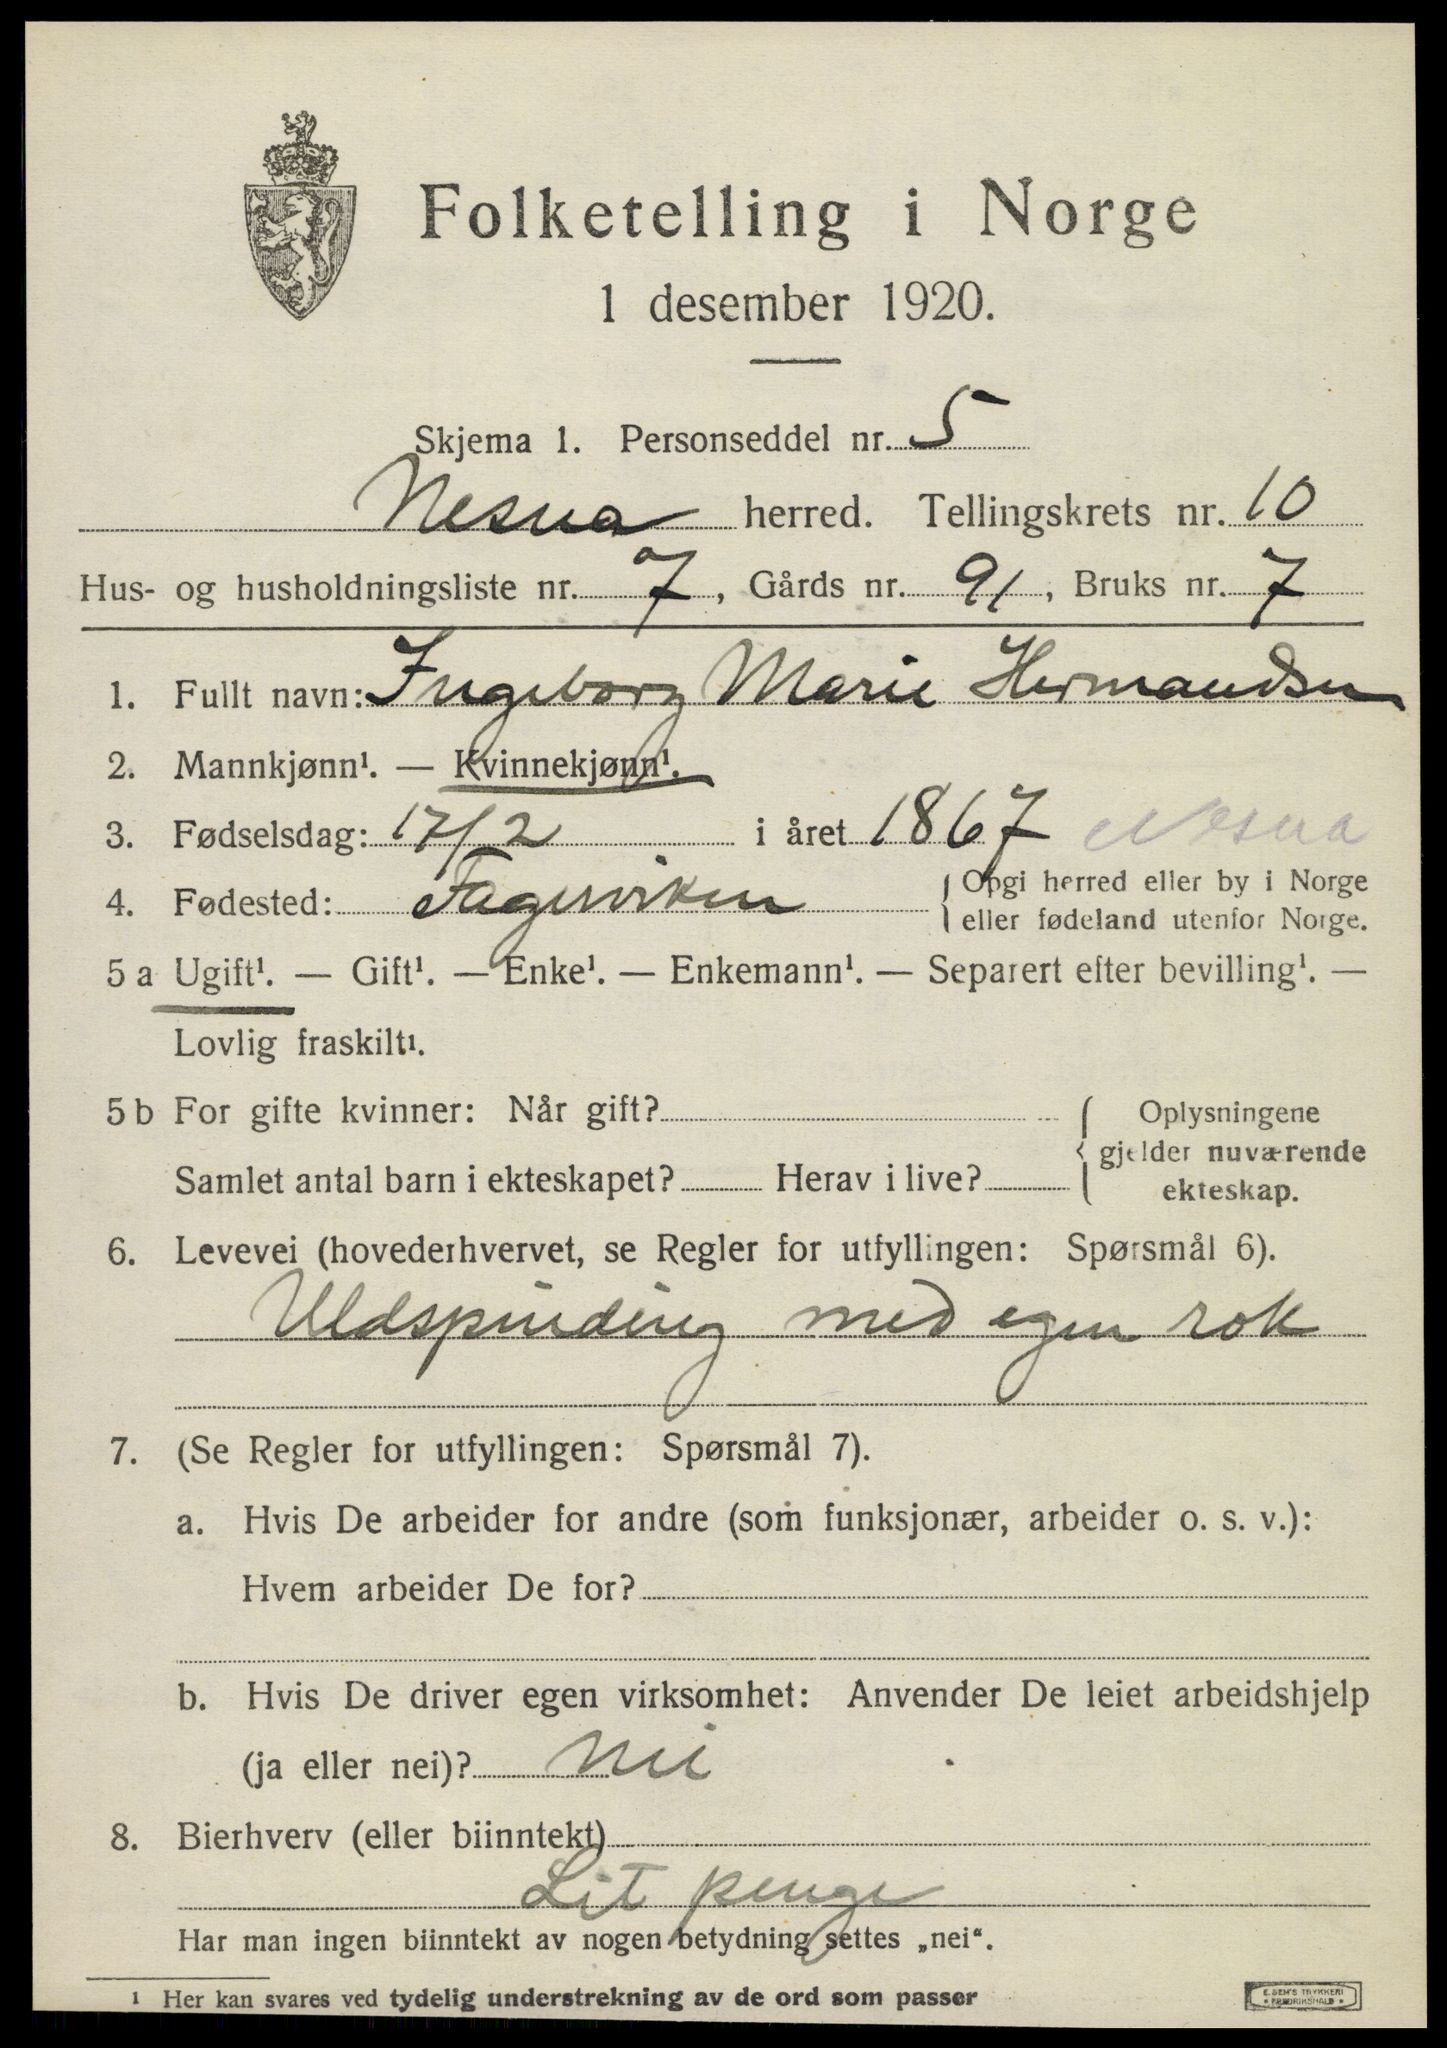 Folketelling i Norge
1 desember 1920.
Skjema 1. Personseddel nr. 5
Nesna herred. Tellingskrets nr. 10
Hus- og husholdningsliste nr. 7, Gårds nr. 91, Bruks nr. 7
1. Fullt navn: Ingeborg Marie Hermandsen
2. Mannkjønn¹. — Kvinnekjønn¹.
3. Fødselsdag: 17/2 i året 1867 Nesna
4. Fødested: Fagerviken { Opgi herred eller by i Norge
eller fødeland utenfor Norge.
5 a Ugift¹. — Gift¹. — Enke¹. — Enkemann¹. — Separert efter bevilling¹. —
Lovlig fraskilt¹.
5 b For gifte kvinner: Når gift? { Oplysningene
gjelder nuværende
Samlet antal barn i ekteskapet? Herav i live? ekteskap.
6. Levevei (hovederhvervet, se Regler for utfyllingen: Spørsmål 6).
Uldspinding med egen rok
7. (Se Regler for utfyllingen: Spørsmål 7).
a. Hvis De arbeider for andre (som funksjonær, arbeider o. s. v.):
Hvem arbeider De for?
b. Hvis De driver egen virksomhet: Anvender De leiet arbeidshjelp
(ja eller nei)? nei
8. Bierhverv (eller biinntekt)
Lit penge
Har man ingen biinntekt av nogen betydning settes „nei“.
¹ Her kan svares ved tydelig understrekning av de ord som passer
E. SEM'S TRYKKERI
FREDRIKSHALD